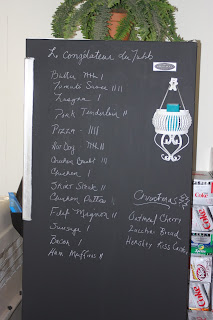 Le Congélateur
Butter
Tomato Sauce IIII
Lasagna I
Pork Tenderloin II
Pizza - IIII
Hot Dog
Chicken Breast
Chicken I
Skirt Steak II
Chicken Patties I
Filet Mignon II
Sausage I
Bacon I
Ham Muffins II
Christmas
Oatmeal Cherry
Zucchini Bread
Hershey Kiss
Coke
Coke